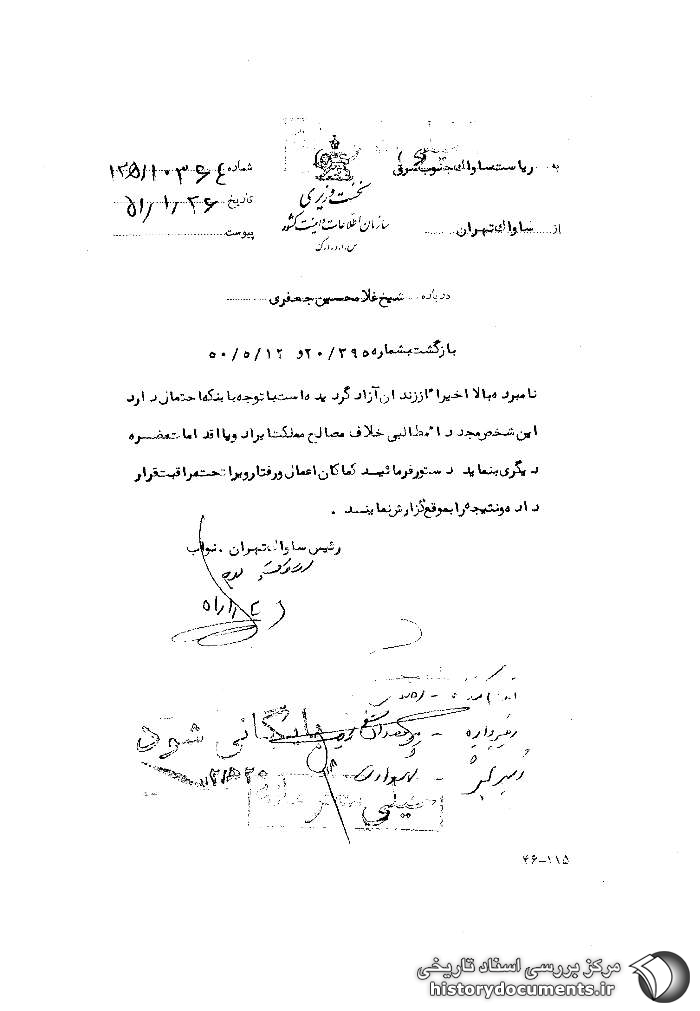 به ریاست ساواک جنوب شرقی
شماره ۱۲۵۱۰۳۶۴
نخست وزیری
تاریخ ۵۱/۱/۲۶
سازمان اطلاعات و امنیت کشور
از ساواک تهران
پیوست
س.ا.و.ا.ک
درباره شیخ غلامحسین جعفری
بازگشت بشماره ۲۰/۳۹۵و ۵۰/۵/۱۲
نامبرده بالا اخیراً از زندان آزاد گردیده است با توجه باینکه احتمال دارد
این شخص مجدداً مطالبی خلاف مصالح مملکت ایراد و یا اقدامات مضره
دیگری بنماید دستور فرمائید کماکان اعمال و رفتار ویرا تحت مراقبت قرار
داده و نتیجه را بموقع گزارش نمایند .
رئیس ساواک تهران . نواب
۵۱/۱/
بایگانی شود
خیلی محرمانه
۴۶-۱۱۵
مرکز بررسی اسناد تاریخی
historydocuments.ir